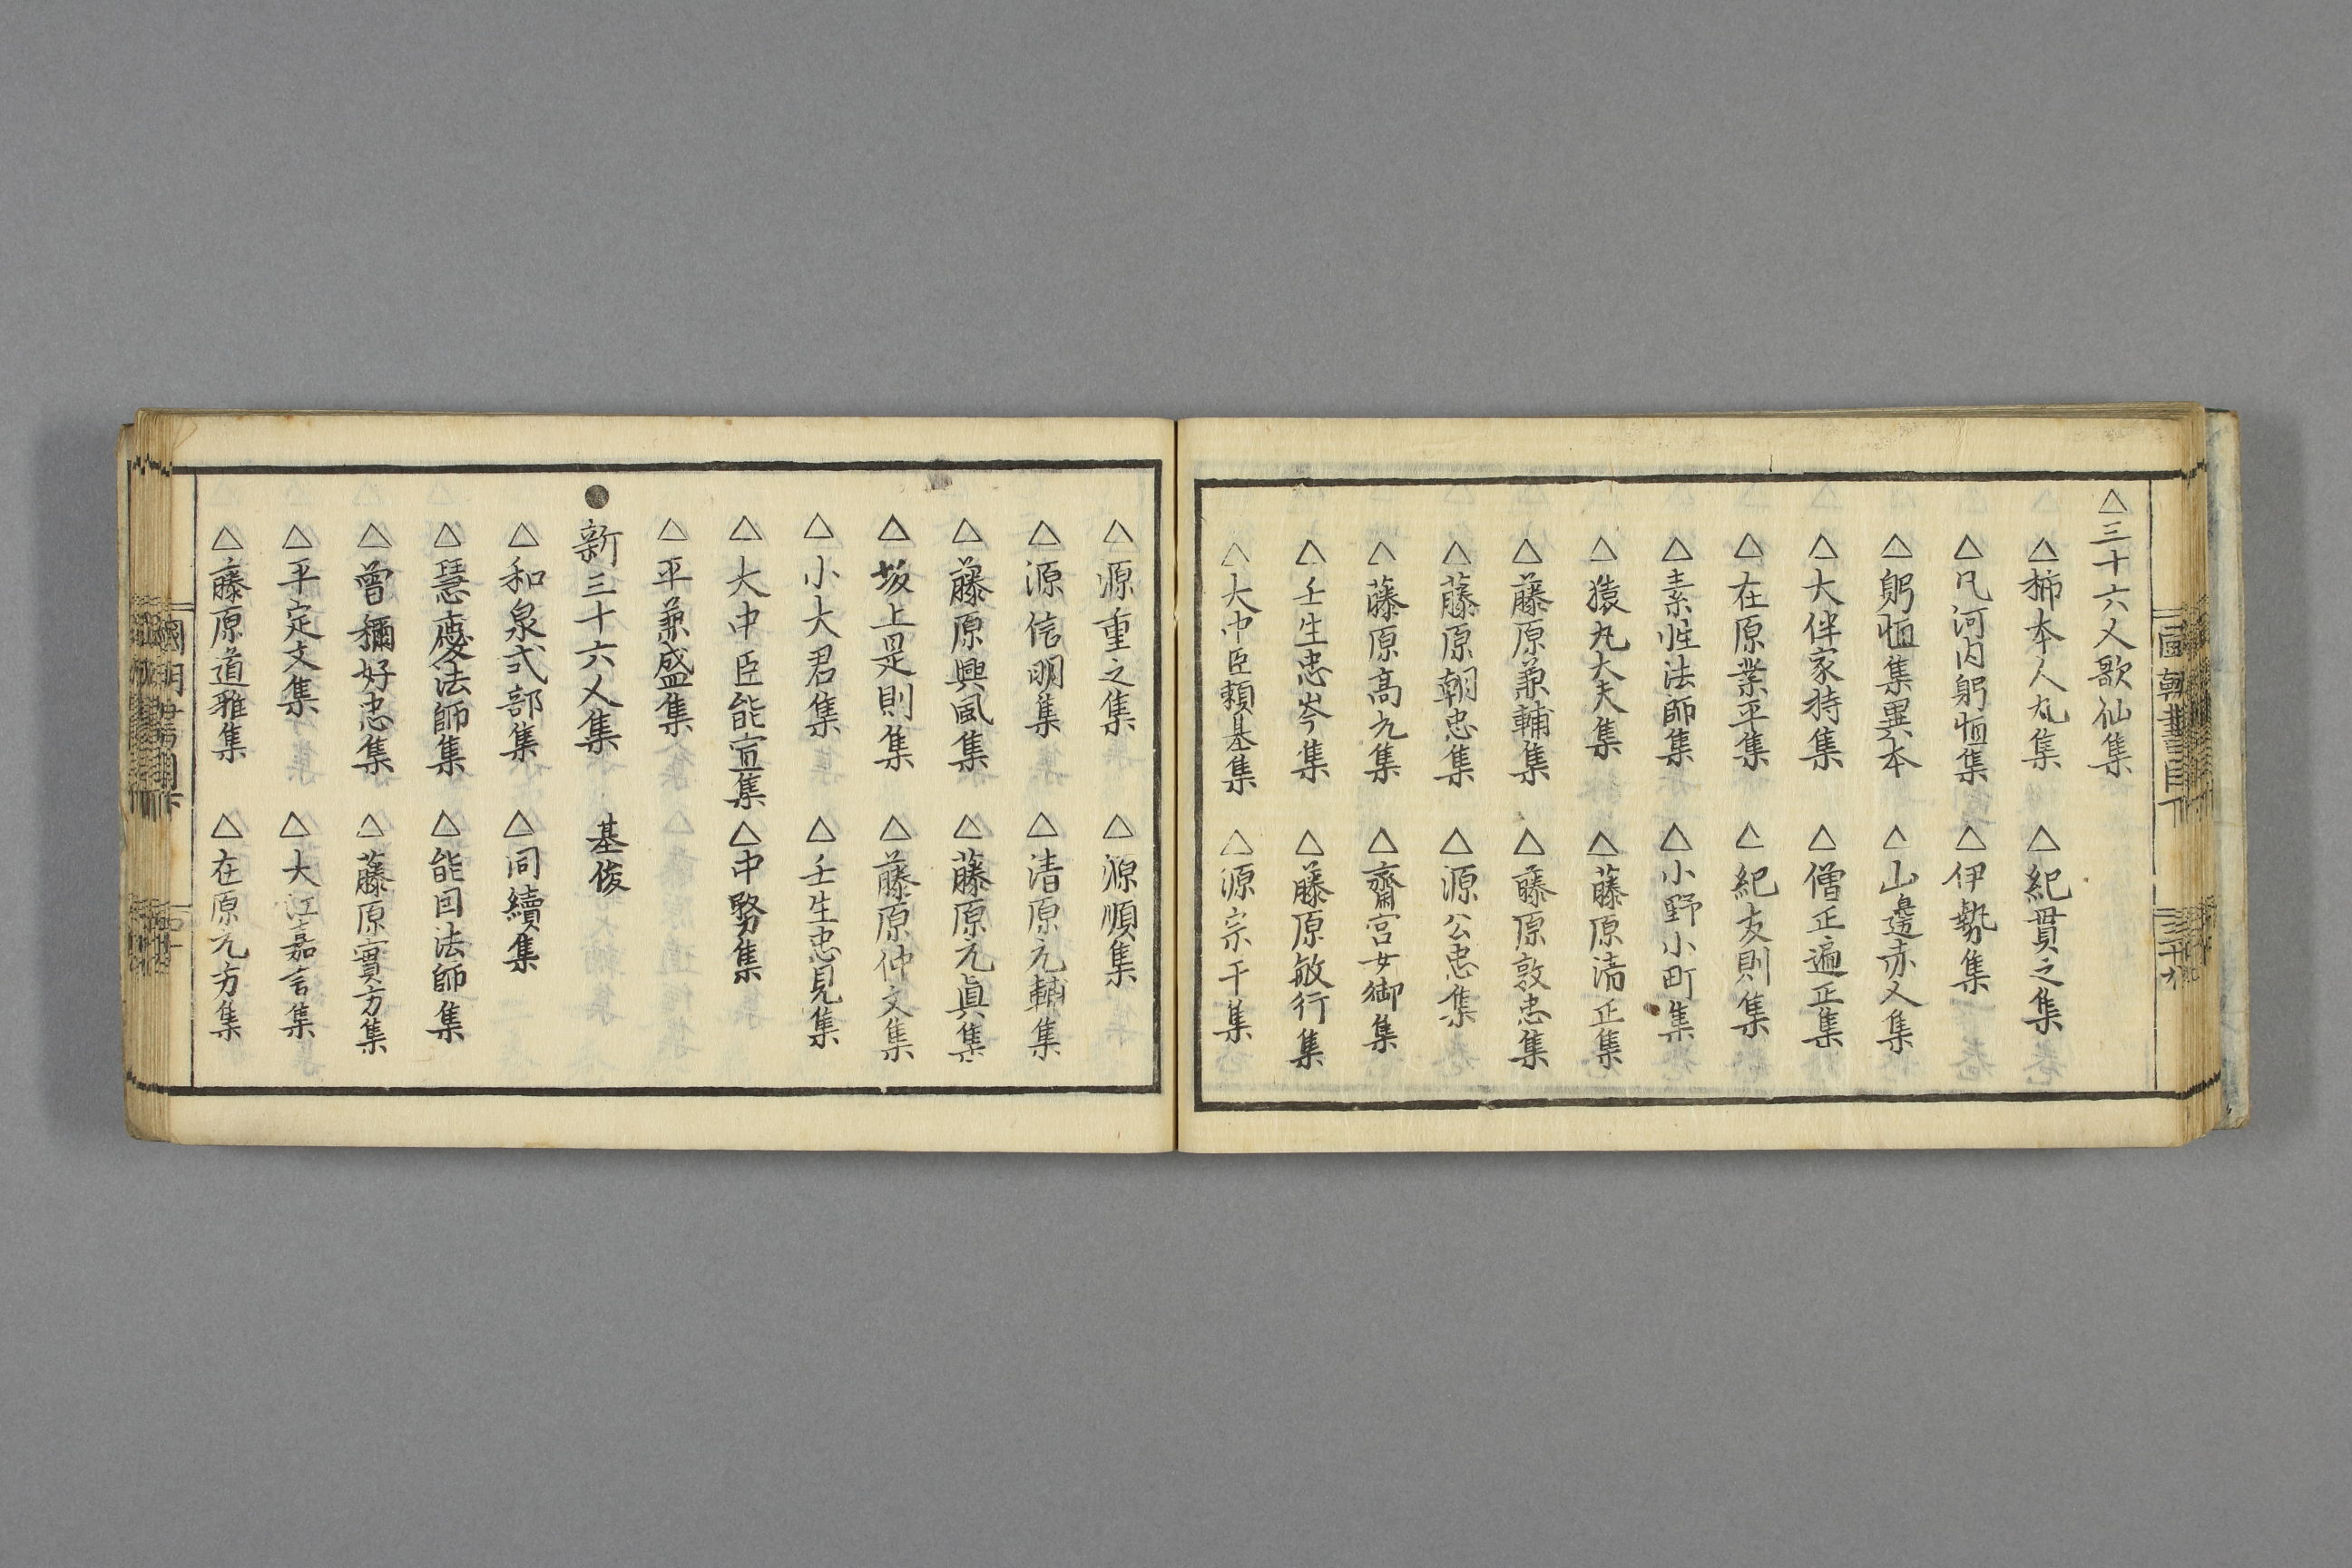 △三十六人歌仙集
△柿本人丸集　△紀貫之集
△凡河内躬恒集　△伊勢集
△躬恒集異本　△山邊赤人集
△大伴家持集　△僧正遍正集
△在原業平集　△紀友則集
△素性法師集　△小野小町集
△猿丸大夫集　△藤原清正集
△藤原兼輔集　△藤原敦忠集
△藤原朝忠集　△源公忠集
△藤原高光集　△齋宮女御集
△壬生忠岑集　△藤原敏行集
△大中臣頼基集　△源宗于集
△源重之集　△源順集
△源信明集　△清原元輔集
△藤原興風集　△藤原元眞集
△坂上是則集　△藤原仲文集
△小大君集　△壬生忠見集
△大中臣能宣集　△中務集
△平兼盛集
●新三十六人集　基俊
△和泉式部集　△同續集
△慧慶法師集　△能因法師集
△曾禰好忠集　△藤原實方集
△平定文集　△大江嘉言集
△藤原道雅集　△在原元方集